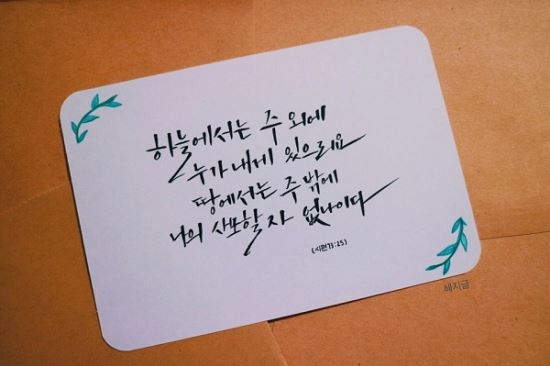 하늘에서는 주 외에
누가 내게 있으리요
땅에서는 주 밖에
나의 사모할 자 없나이다
(시편73:25)
혜지글